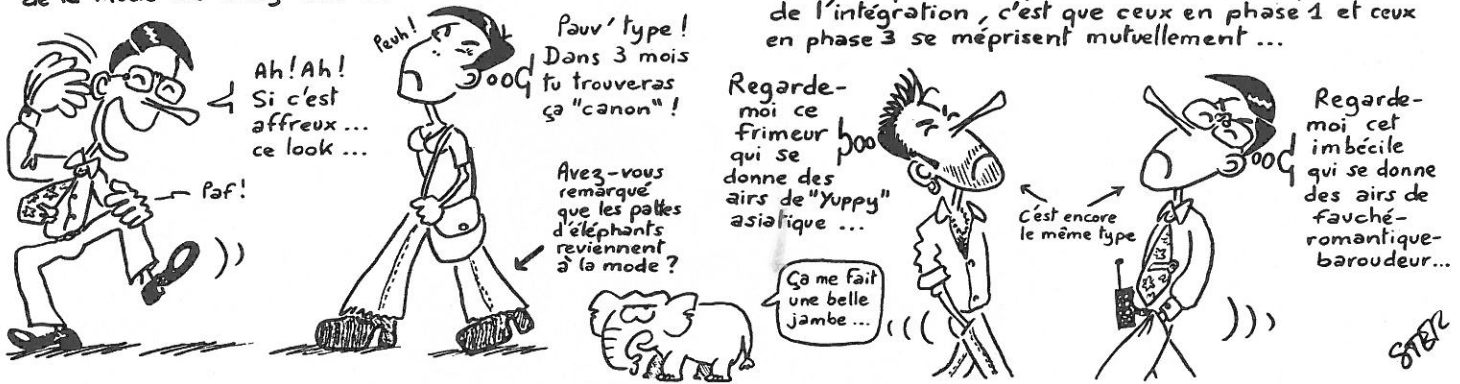 Ah! Ah!
Si c'est
affreux...
ce look...
Paf!
Peuh!
Pauv' type!
Dans 3 mois
tu trouveras
ça "canon"!
Avez-vous
remarqué
que les pattes
d'éléphants
reviennent
à la mode?
de l'intégration, c'est que ceux en phase 1 et ceux
en phase 3 se méprisent mutuellement...
Regarde-
moi ce
frimeur
qui se
donne des
airs de "Yuppy"
asiatique...
Ça me fait
une belle
jambe...
C'est encore
le même type
Regarde-
moi cet
imbécile
qui se donne
des airs de
fauché-
romantique-
baroudeur...
STER